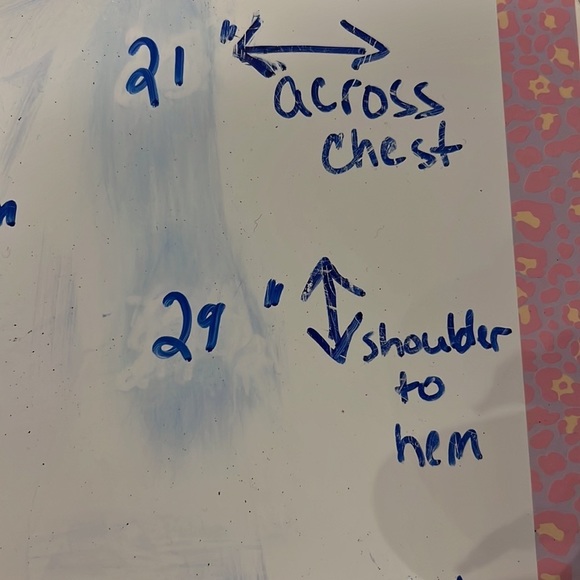 21" ↔
across
chest
29" ↕ shoulder
to
hem